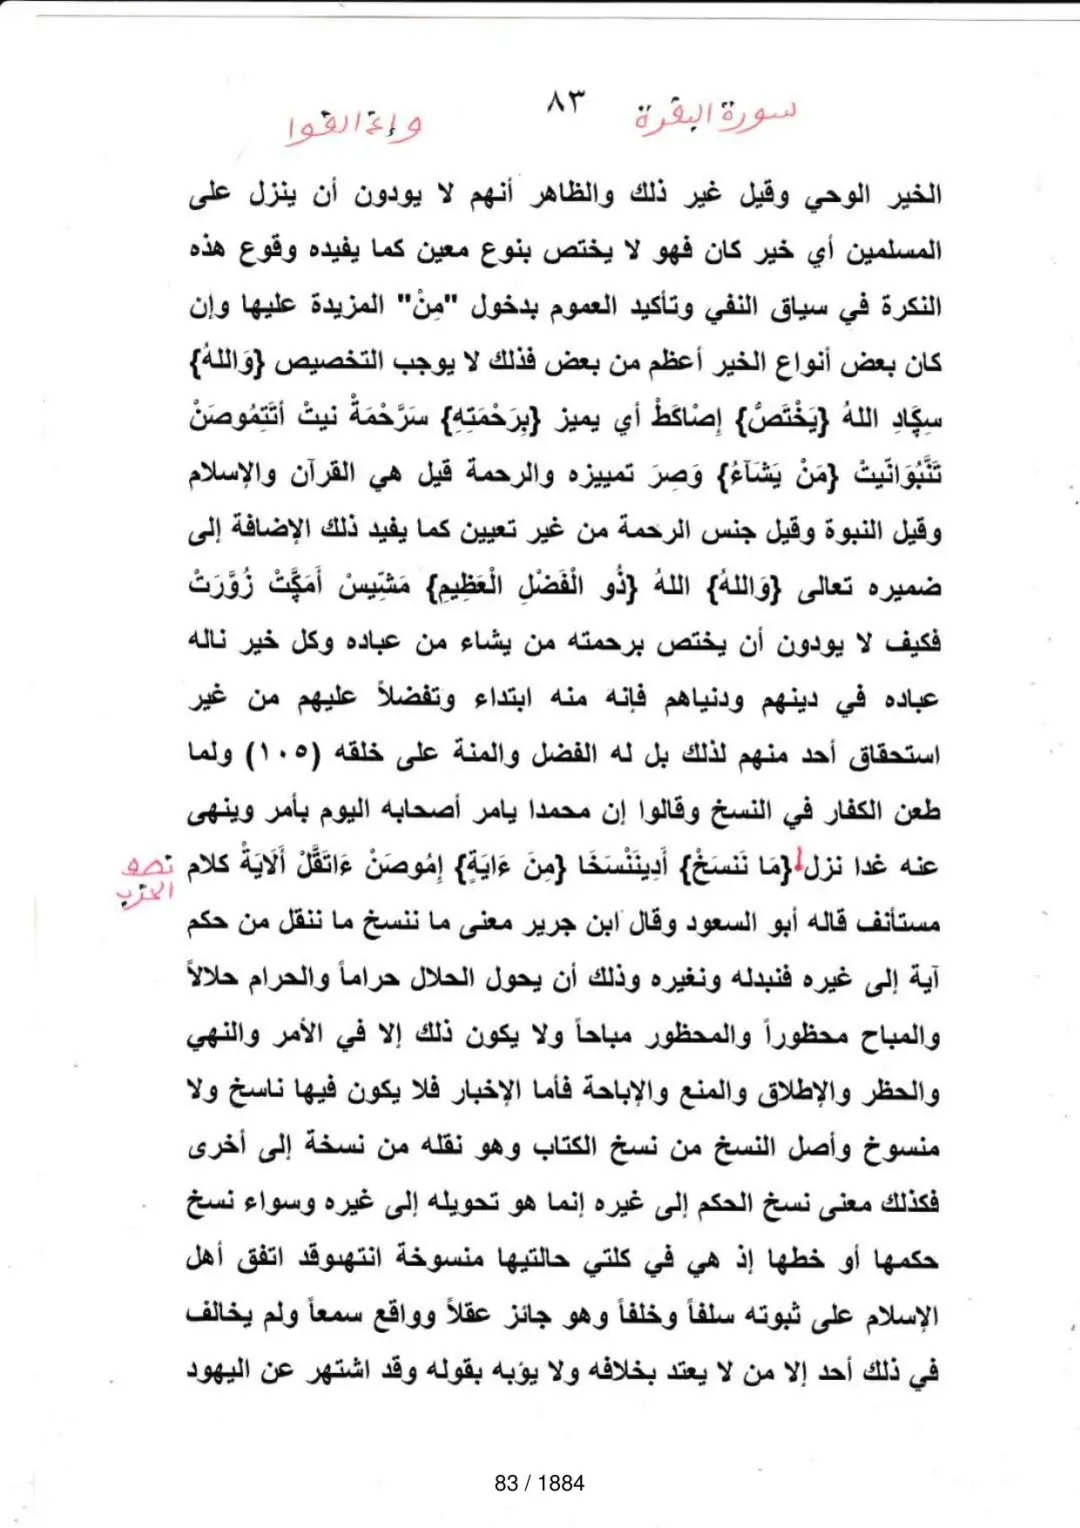 سورة البقرة ٨٣ وإذالقوا
الخير الوحي وقيل غير ذلك والظاهر أنهم لا يودون أن ينزل على
المسلمين أي خير كان فهو لا يختص بنوع معين كما يفيده وقوع هذه
النكرة في سياق النفي وتأكيد العموم بدخول "مِنْ" المزيدة عليها وإن
كان بعض أنواع الخير أعظم من بعض فذلك لا يوجب التخصيص {وَاللهُ}
اللهُ {يَخْتَصُّ} إِصْاكَطْ أي يميز {بِرَحْمَتِهِ} سَرَّحْمَةْ نيتْ أتَتِمُوصَنْ
تَنَّبُوَانّيتْ {مَنْ يَشَآءُ} وَصِرَ تمييزه والرحمة قيل هي القرآن والإسلام
وقيل النبوة وقيل جنس الرحمة من غير تعيين كما يفيد ذلك الإضافة إلى
ضميره تعالى {وَاللهُ} اللهُ {ذُو الْفَضْلِ الْعَظِيمِ} مَشّيسْ أَمَكَّتْ زُوَّرَتْ
فكيف لا يودون أن يختص برحمته من يشاء من عباده وكل خير ناله
عباده في دينهم ودنياهم فإنه منه ابتداء وتفضلاً عليهم من غير
استحقاق أحد منهم لذلك بل له الفضل والمنة على خلقه (١٠٥) ولما
طعن الكفار في النسخ وقالوا إن محمدا يامر أصحابه اليوم بأمر وينهى
عنه غدا نزل {مَا نَنسَخْ} أَدِينَنْسَخَا {مِنَ ءَايَةٍ} إِمُوصَنْ ءَاتَقَّلْ ألَايَةْ كلام
الحزب
مستأنف قاله أبو السعود وقال ابن جرير معنى ما ننسخ ما ننقل من حكم
آية إلى غيره فنبدله ونغيره وذلك أن يحول الحلال حراماً والحرام حلالاً
والمباح محظوراً والمحظور مباحاً ولا يكون ذلك إلا في الأمر والنهي
والحظر والإطلاق والمنع والإباحة فأما الإخبار فلا يكون فيها ناسخ ولا
منسوخ وأصل النسخ من نسخ الكتاب وهو نقله من نسخة إلى أخرى
فكذلك معنى نسخ الحكم إلى غيره إنما هو تحويله إلى غيره وسواء نسخ
حكمها أو خطها إذ هي في كلتي حالتيها منسوخة انتهىوقد اتفق أهل
الإسلام على ثبوته سلفاً وخلفاً وهو جائز عقلاً وواقع سمعاً ولم يخالف
في ذلك أحد إلا من لا يعتد بخلافه ولا يؤبه بقوله وقد اشتهر عن اليهود
83 / 1884